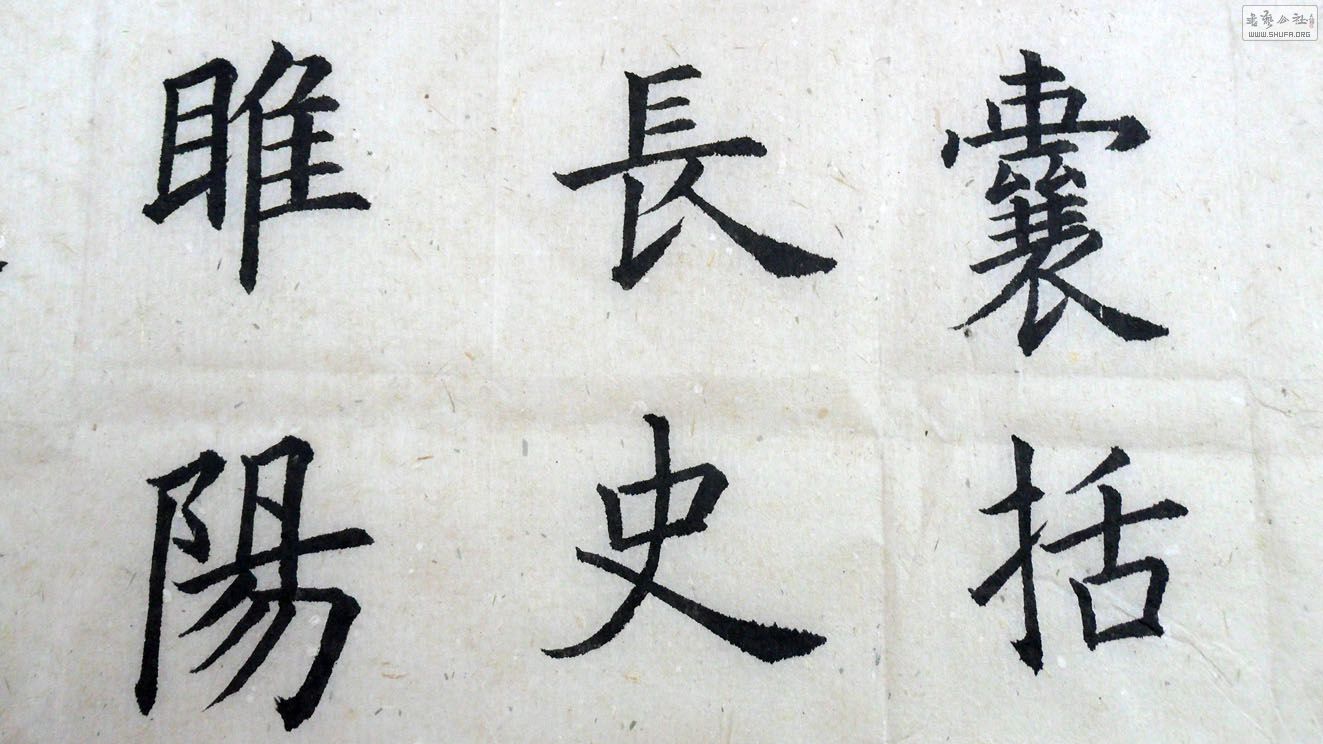 囊括
長史
睢陽
書藝公社
WWW.SHUFA.ORG